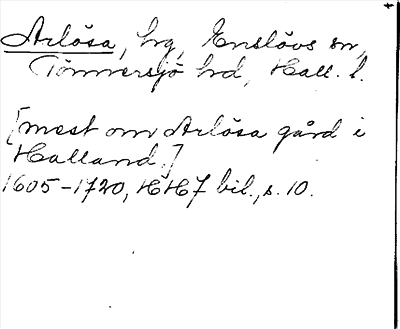 Arlösa, hg, Enslövs sn,
Tönnersjö hd, Hall. l.
[mest om Arlösa gård i
Halland.]
1605-1720, HH7 bil., s. 10.